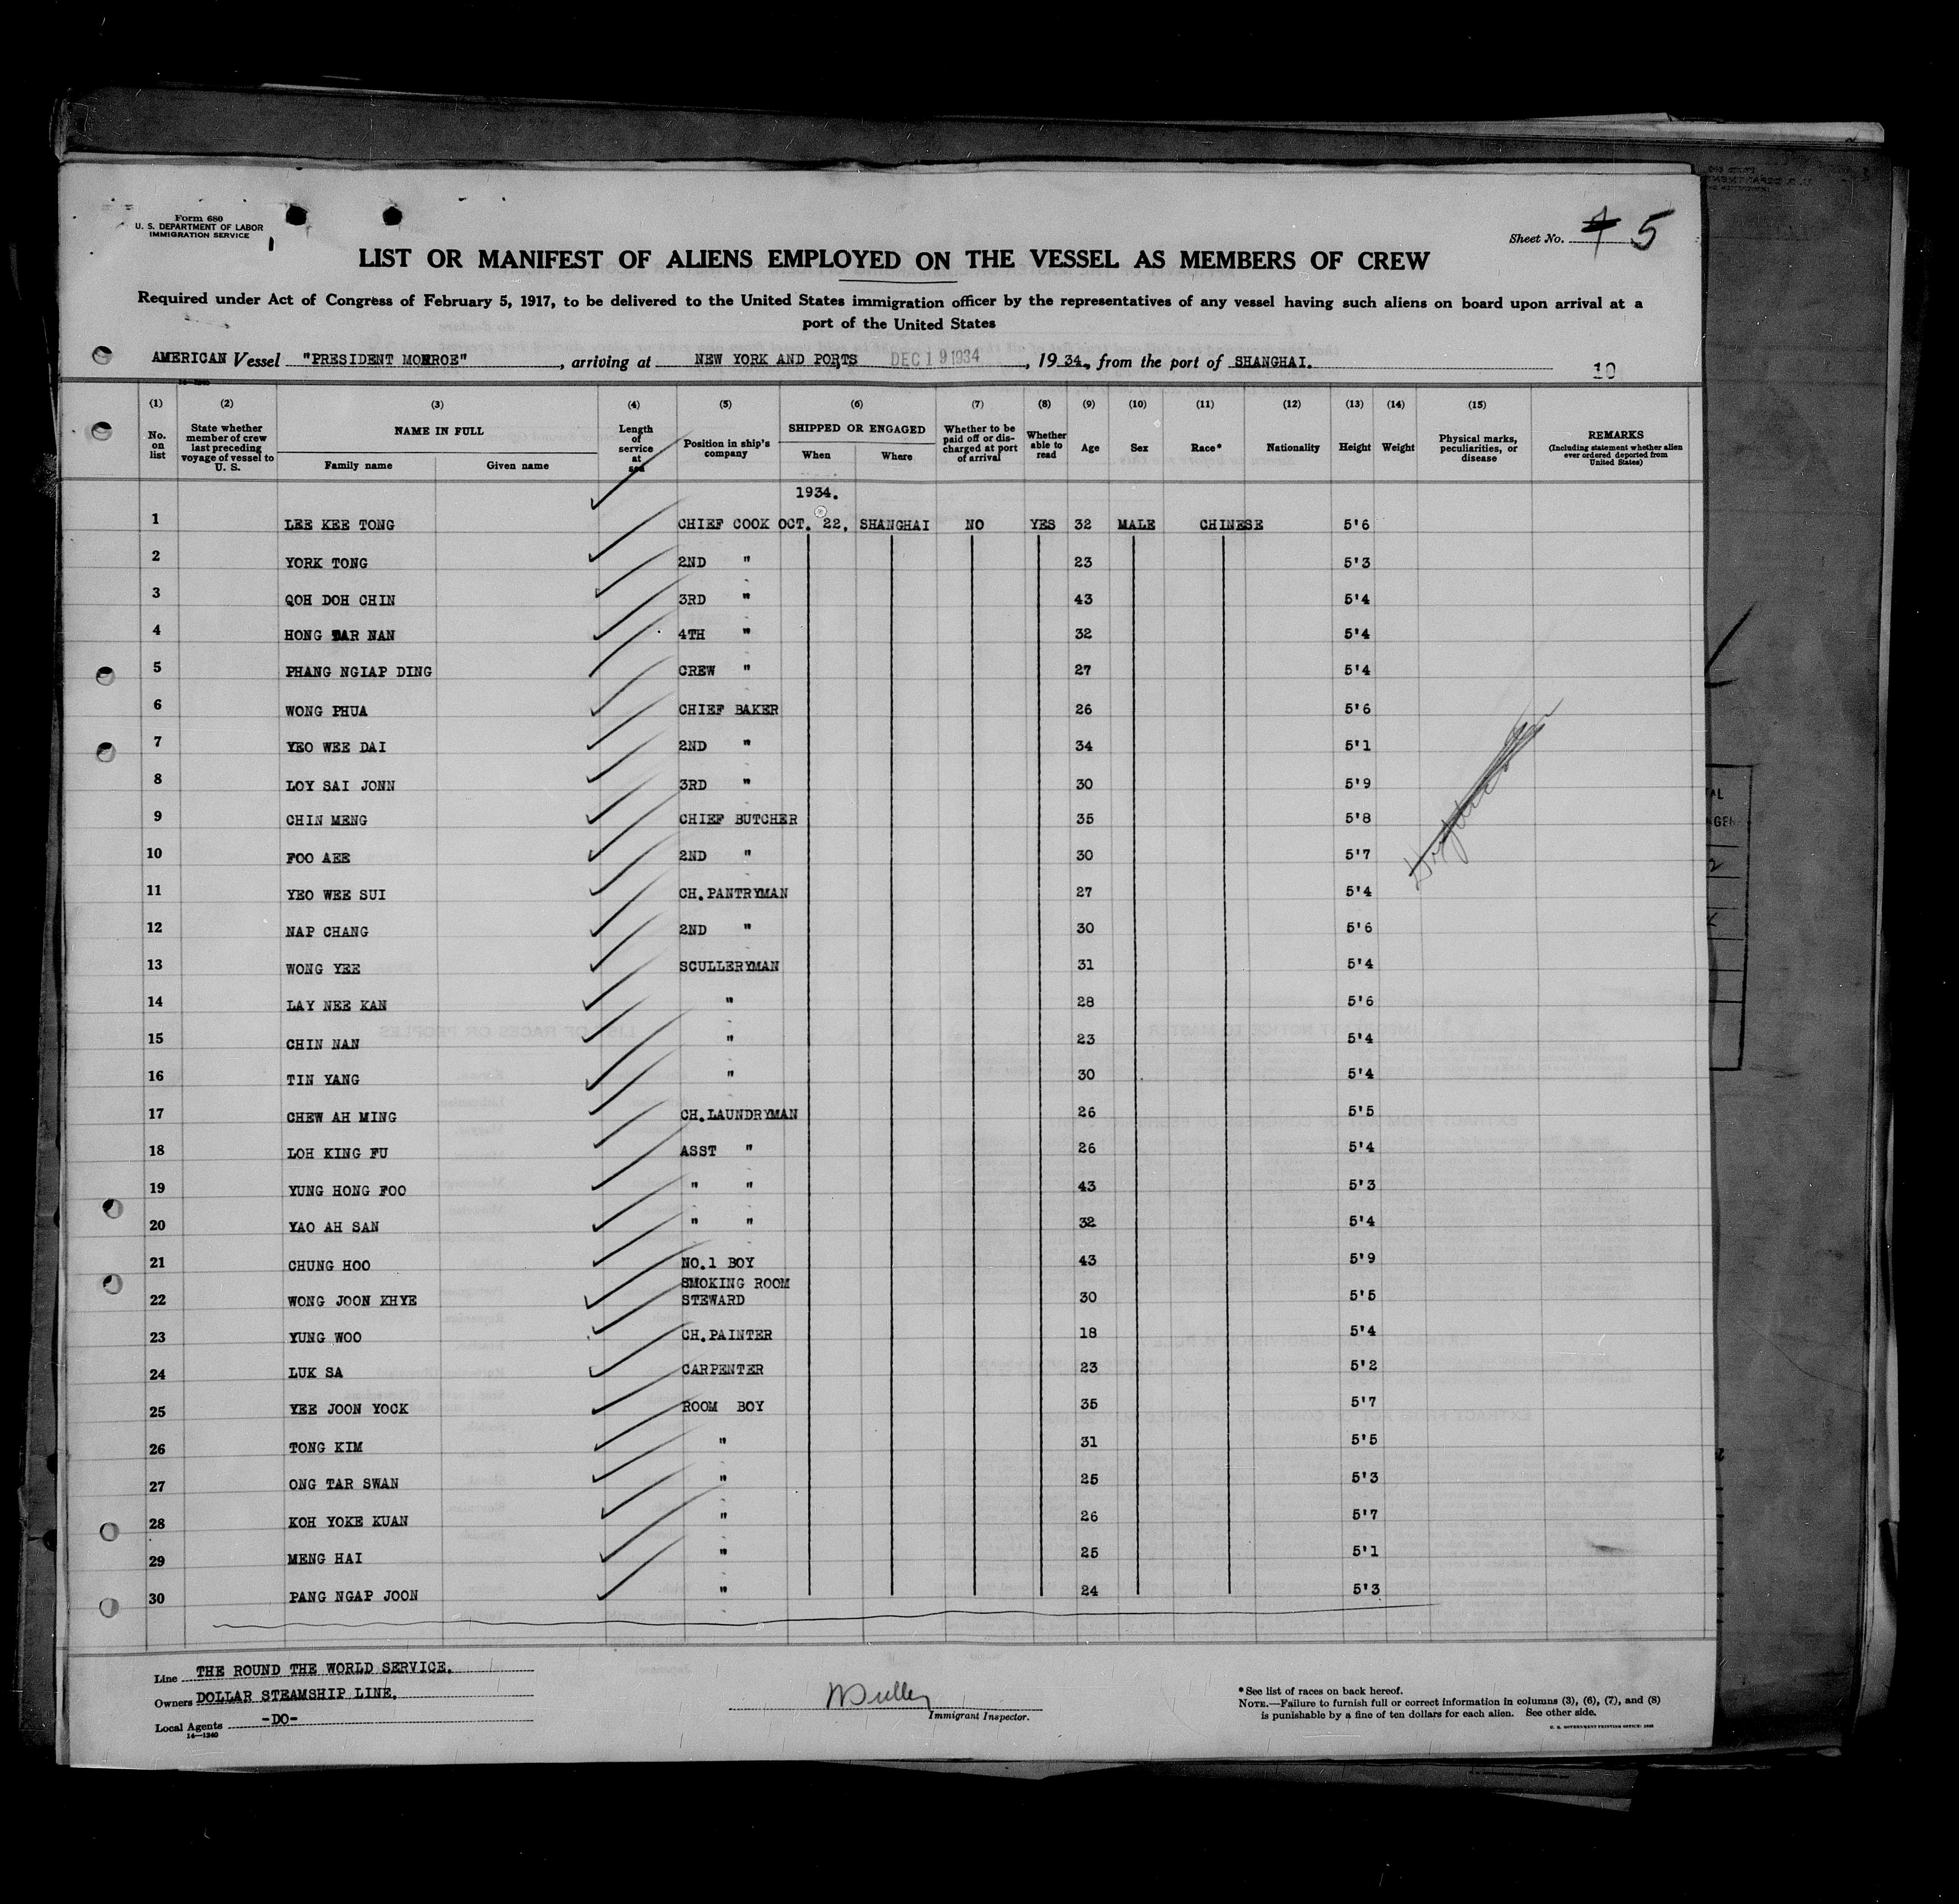 Form 680
U. S. DEPARTMENT OF LABOR
IMMIGRATION SERVICE
Sheet No. 5
LIST OR MANIFEST OF ALIENS EMPLOYED ON THE VESSEL AS MEMBERS OF CREW
Required under Act of Congress of February 5, 1917, to be delivered to the United States immigration officer by the representatives of any vessel having such aliens on board upon arrival at a
port of the United States
AMERICAN Vessel "PRESIDENT MONROE", arriving at NEW YORK AND PORTS DEC 19 1934, 1934, from the port of SHANGHAI.
10
(1) (2) (3) (4) (5) (6) (7) (8) (9) (10) (11) (12) (13) (14) (15)
No. on list
State whether member of crew last preceding voyage of vessel to U. S.
NAME IN FULL
Family name Given name
Length of service at sea
Position in ship's company
SHIPPED OR ENGAGED
When Where
Whether to be paid off or discharged at port of arrival
Whether able to read
Age Sex Race* Nationality Height Weight
Physical marks, peculiarities, or disease
REMARKS
(Including statement whether alien ever ordered deported from United States)
1934.
1 LEE KEE TONG CHIEF COOK OCT. 22, SHANGHAI NO YES 32 MALE CHINESE 5'6
2 YORK TONG 2ND " 23 5'3
3 QOH DOH CHIN 3RD " 43 5'4
4 HONG TAR NAN 4TH " 32 5'4
5 PHANG NGIAP DING CREW " 27 5'4
6 WONG PHUA CHIEF BAKER 26 5'6
7 YEO WEE DAI 2ND " 34 5'1
8 LOY SAI JONN 3RD " 30 5'9
9 CHIN MENG CHIEF BUTCHER 35 5'8
10 FOO AEE 2ND " 30 5'7
11 YEO WEE SUI CH.PANTRYMAN 27 5'4
12 NAP CHANG 2ND " 30 5'6
13 WONG YEE SCULLERYMAN 31 5'4
14 LAY NEE KAN " 28 5'6
15 CHIN NAN " 23 5'4
16 TIN YANG " 30 5'4
17 CHEW AH MING CH.LAUNDRYMAN 26 5'5
18 LOH KING FU ASST " 26 5'4
19 YUNG HONG FOO " " 43 5'3
20 YAO AH SAN " " 32 5'4
21 CHUNG HOO NO.1 BOY 43 5'9
SMOKING ROOM
22 WONG JOON KHYE STEWARD 30 5'5
23 YUNG WOO CH.PAINTER 18 5'4
24 LUK SA CARPENTER 23 5'2
25 YEE JOON YOCK ROOM BOY 35 5'7
26 TONG KIM " 31 5'5
27 ONG TAR SWAN " 25 5'3
28 KOH YOKE KUAN " 26 5'7
29 MENG HAI " 25 5'1
30 PANG NGAP JOON " 24 5'3
Line THE ROUND THE WORLD SERVICE.
Owners DOLLAR STEAMSHIP LINE.
Local Agents -DO-
14—1240
Immigrant Inspector.
* See list of races on back hereof.
NOTE.—Failure to furnish full or correct information in columns (3), (6), (7), and (8)
is punishable by a fine of ten dollars for each alien. See other side.